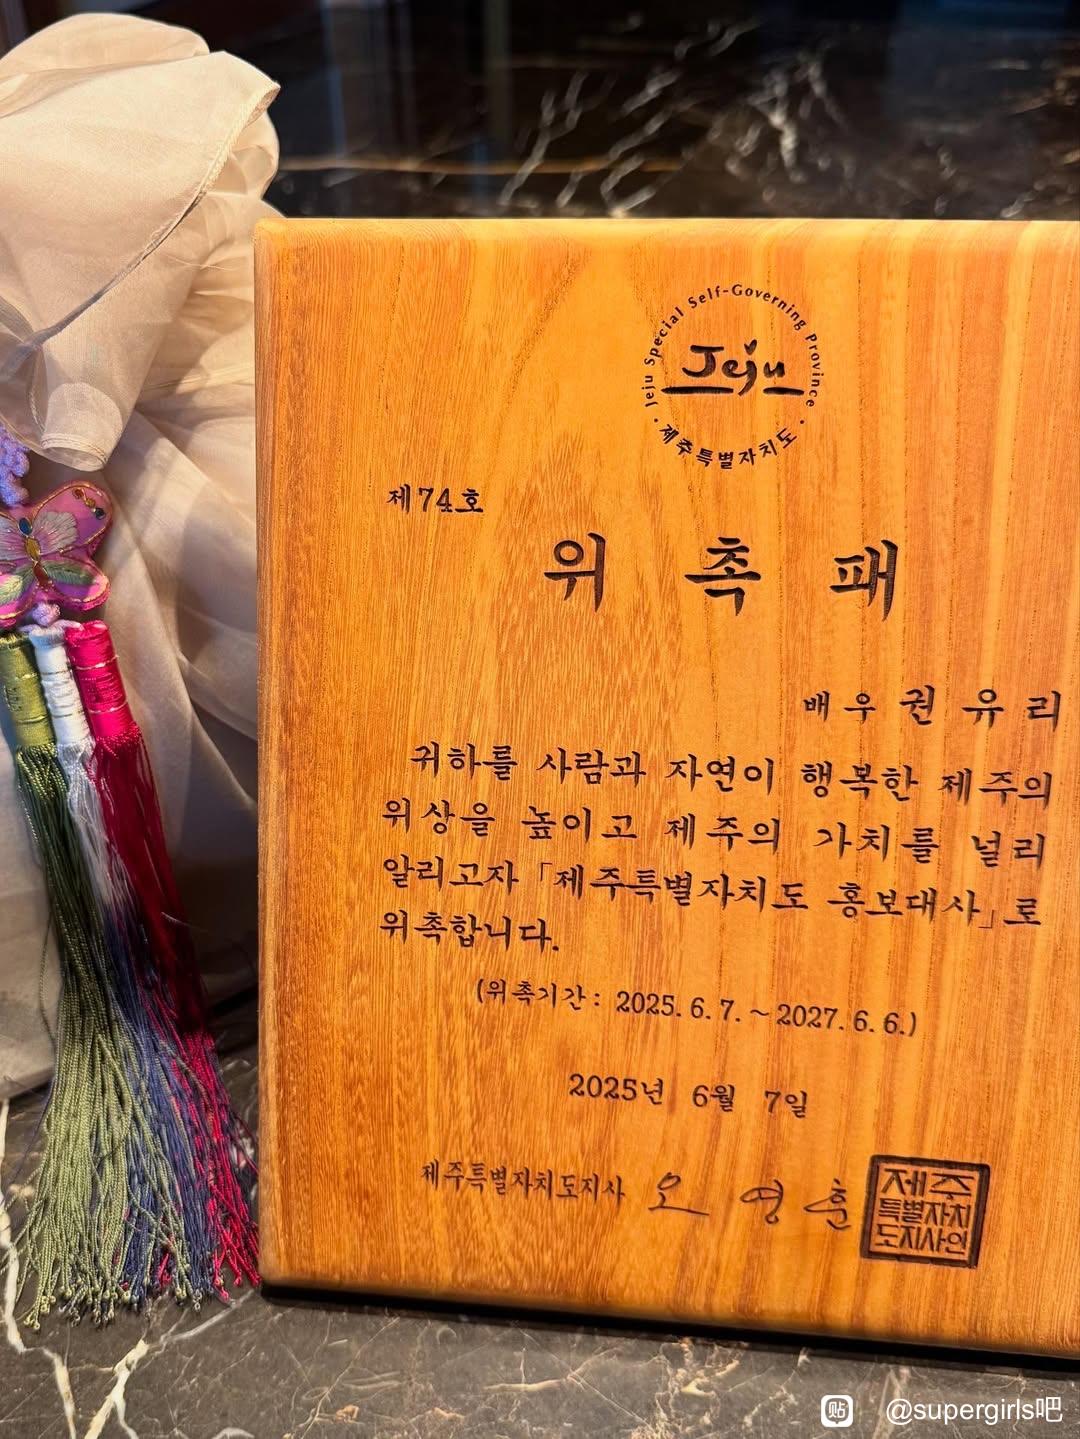 Jeju Special Self-Governing Province
Jeju
제주특별자치도
제74호
위촉패
배우 권유리
귀하를 사람과 자연이 행복한 제주의
위상을 높이고 제주의 가치를 널리
알리고자 「제주특별자치도 홍보대사」로
위촉합니다.
(위촉기간 : 2025. 6. 7. ~ 2027. 6. 6.)
2025년 6월 7일
제주특별자치도지사 오영훈
제주
특별자치
도지사인
贴 @supergirls吧